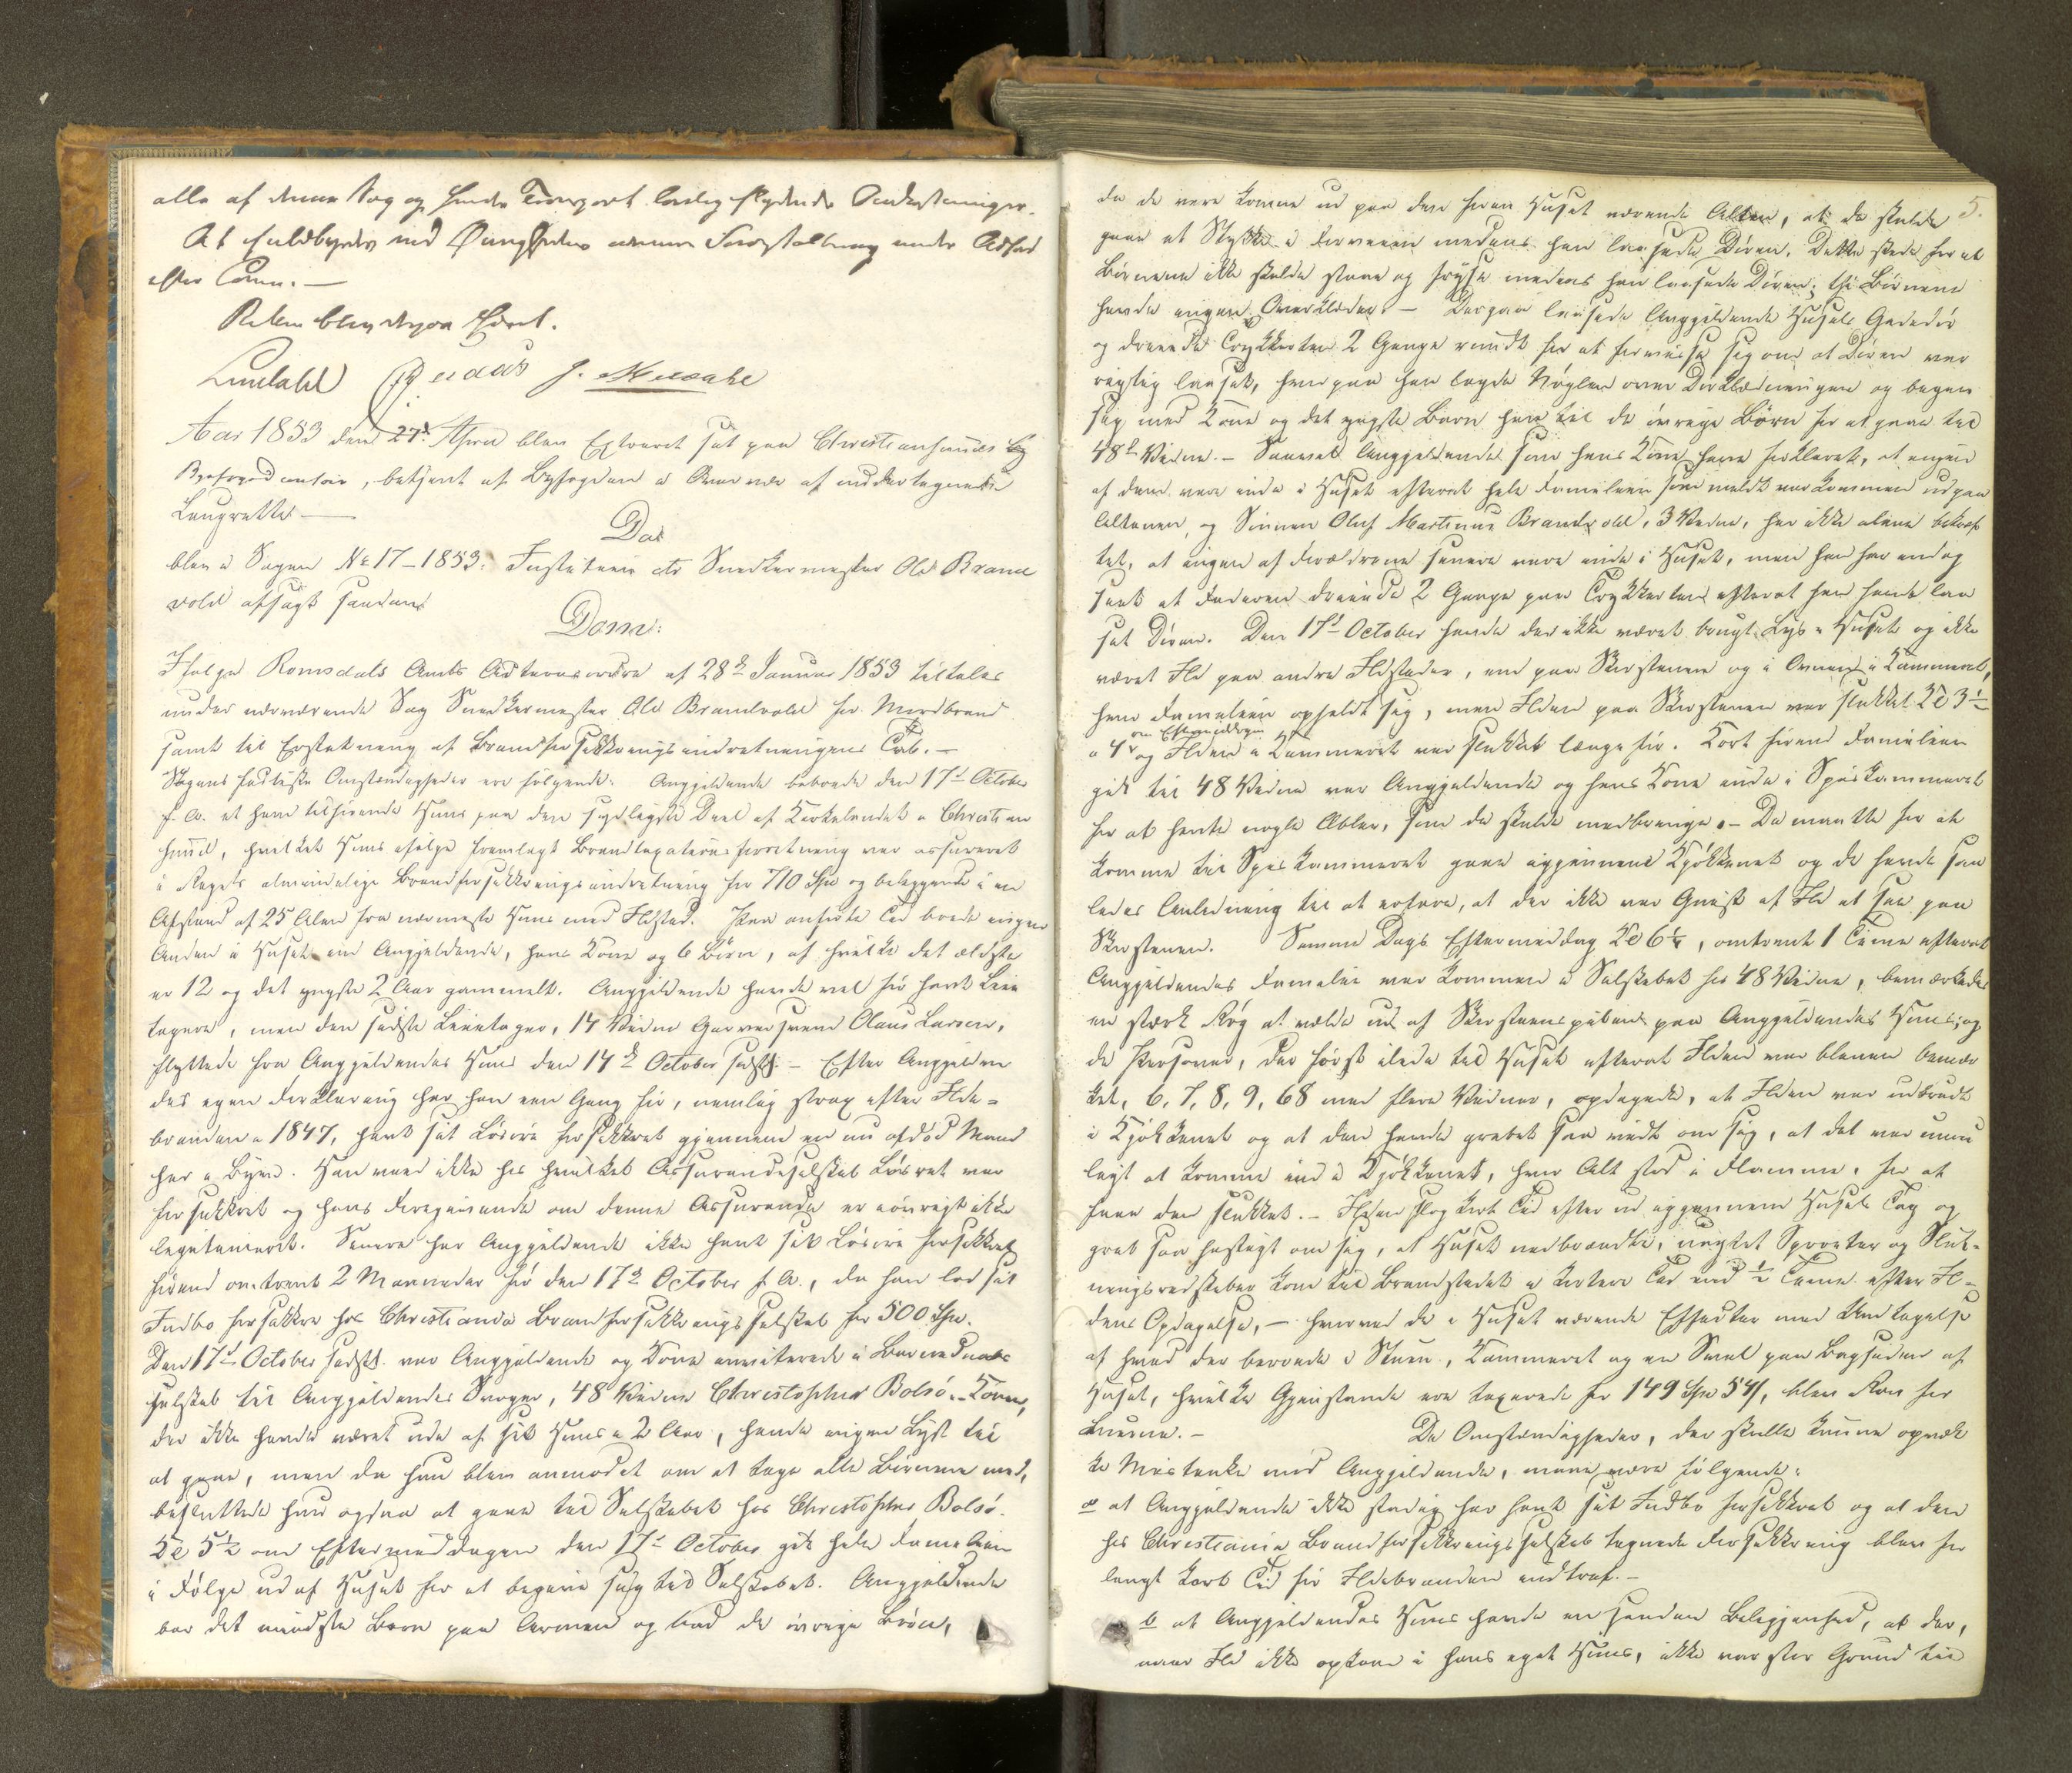 alle af denne Sag og hendes Transport lovlig flydende Omkostninger.
At fuldbyrdes ved Øvrighedens nærmere Foranstaltning under Adfærd
efter Loven. —
Retten blev derpaa hævet.
Lundahl
Aar 1853 den 27de April blev Extraret sat paa Christiansunds By
Byefogedcontoir, betjent af Byfogden i Overvær af undertegnede
Laugrette —
Da
blev i Sagen No 17-1853: Justitien ctr Snedkermester Ole Brand
vold afsagt saadan
Dom:
Ifølge Romsdals Amts Actionsordre af 28de Januar 1853 tiltales
under nærværende Sag Snedkermester Ole Brandvold for Mordbrand
samt til Erstatning af Brandforsikkringsindretningens Tab. —
Sagens factiske Omstændigheder ere følgende: Angjeldende beboede den 17de October
f. A. et ham tilhørende Huus paa den sydligste Deel af Kirkelandet i Christian
sund, hvilket Huus ifølge fremlagt Brandtaxationsforretning var assureret
i Rigets almindelige Brandforsikkringsindretning for 710 Spd og beliggende i en
Afstand af 25 Alen fra nærmeste Huus med Ildsted. Paa anførte Tid boede ingen
Anden i Huset end Angjeldende, hans Kone og 6 Børn, af hvilke det ældste
er 12 og det yngste 2 Aar gammelt. Angjeldende havde vel før havt Leie
tagere, men den sidste Leietager, 14 Vidne Garversvend Olaus Larsen,
flyttede fra Angjeldendes Huus den 14de October sidstl. — Efter Angjelden
des egen Forklaring har han een Gang før, nemlig strax efter Ilde-
branden i 1847, havt sit Løsøre forsikkret gjennem en nu afdød Mand
her i Byen. Han veed ikke hos hvilket Assuranceselskab Løsøret var
forsikkret og hans Foregivende om denne Assurance er iøvrigt ikke
legitimeret. Senere har Angjeldende ikke havt sit Løsøre forsikkret
førend omtrent 2 Maaneder før den 17de October f. A., da han lod sit
Indbo forsikkre hos Christiania Brandforsikkringsselskab for 500 Spd.
Den 17de October sidstl. var Angjeldende og Kone inviterede i Barnedaabs
selskab til Angjeldendes Svoger, 48 Vidne Christopher Bolsø. — Konen,
der ikke havde været ude af sit Huus i 2 Aar, havde ingen Lyst til
at gaae, men da hun blev anmodet om at tage alle Børnene med,
besluttede hun ogsaa at gaae til Selskabet hos Christopher Bolsø.
Kl 5½ om Eftermiddagen den 17de October gik hele Familien
i Følge ud af Huset for at begive sig til Selskabet. Angjeldende
bar det mindste Barn paa Armen og bad de øvrige Børn,
5.
da de vare komne ud paa den foran Huset værende Altan, at de skulde
gaae et Stykke i Forveien medens han laasede Døren. Dette skede for at
Børnene ikke skulde staae og fryse medens han laasede Døren; thi Børnene
havde ingen Overklæder. — Derpaa laasede Angjeldende Husets Gadedør
og dreiede Trykkerten 2 Gange rundt for at forvisse sig om at Døren var
rigtig laaset, hvorpaa han lagde Nøglen over Dørklædningen og begav
sig med Kone og det yngste Barn hen til de øvrige Børn for at gaae til
48de Vidne. — Saavel Angjeldende som hans Kone have forklaret, at ingen
af dem vare inde i Huset efterat hele Familien som meldt var kommen ud paa
Altanen, og Sønnen Oluf Martinus Brandvold, 3 Vidne, har ikke alene bekræf
tet, at ingen af Forældrene senere vare inde i Huset, men han har endog
seet at Faderen dreiede 2 Gange paa Trykkerten efterat han havde laa
set Døren. Den 17de October havde der ikke været brugt Lys i Huset og ikke
været Ild paa andre Ildsteder, end paa Skorstenen og i Ovnen i Kammeret,
hvor Familien opholdt sig, men Ilden paa Skorstenen var slukket Kl 3½
om Eftermiddagen
a 4 og Ilden i Kammeret var slukket længe før. Kort førend Familien
gik til 48 Vidne var Angjeldende og hans Kone inde i Spiskammeret
for at hente nogle Æbler, som de skulde medbringe. — De maatte for at
komme til Spiskammeret gaae igjennem Kjøkkenet og de havde saa
ledes Anledning til at erfare, at der ikke var Gnist af Ild at see paa
Skorstenen. Samme Dags Eftermiddag Kl 6¼, omtrent 1 Time efterat
Angjeldendes Familie var kommen i Selskabet hos 48 Vidne, bemærkedes
en stærk Røg at vælde ud af Skorsteenspiben paa Angjeldendes Huus, og
de Personer, der først ilede til Huset efterat Ilden var bleven bemær
ket, 6, 7, 8, 9, 68 med flere Vidner, opdagede, at Ilden var udbrudt
i Kjøkkenet og at den havde grebet saa vidt om sig, at det var umu
ligt at komme ind i Kjøkkenet, hvor Alt stod i Flamme, for at
faae den slukket. — Ilden slog kort Tid efter ud igjennem Husets Tag og
greb saa hastigt om sig, at Huset nedbrændte, uagtet Sprøiter og Sluk-
ningsredskaber kom til Brandstedet i kortere Tid end ½ Time efter Il-
dens Opdagelse, — hvorved de i Huset værende Effecter med Undtagelse
af hvad der beroede i Stuen, Kammeret og en Sval paa Bagsiden af
Huset, hvilke Gjenstande ere taxerede for 149 Spd 54, blev Rov for
Luerne. — De Omstændigheder, der skulle kunne opvæk
ke Mistanke mod Angjeldende, maae være følgende:
a at Angjeldende ikke stadig har havt sit Indbo forsikkret og at den
hos Christiania Brandforsikkringsselskab tegnede Forsikkring blev for
langt kort Tid før Ildebranden indtraf. —
b at Angjeldendes Huus havde en saadan Beliggenhed, at der,
naar Ild ikke opkom i hans eget Huus, ikke var stor Grund til